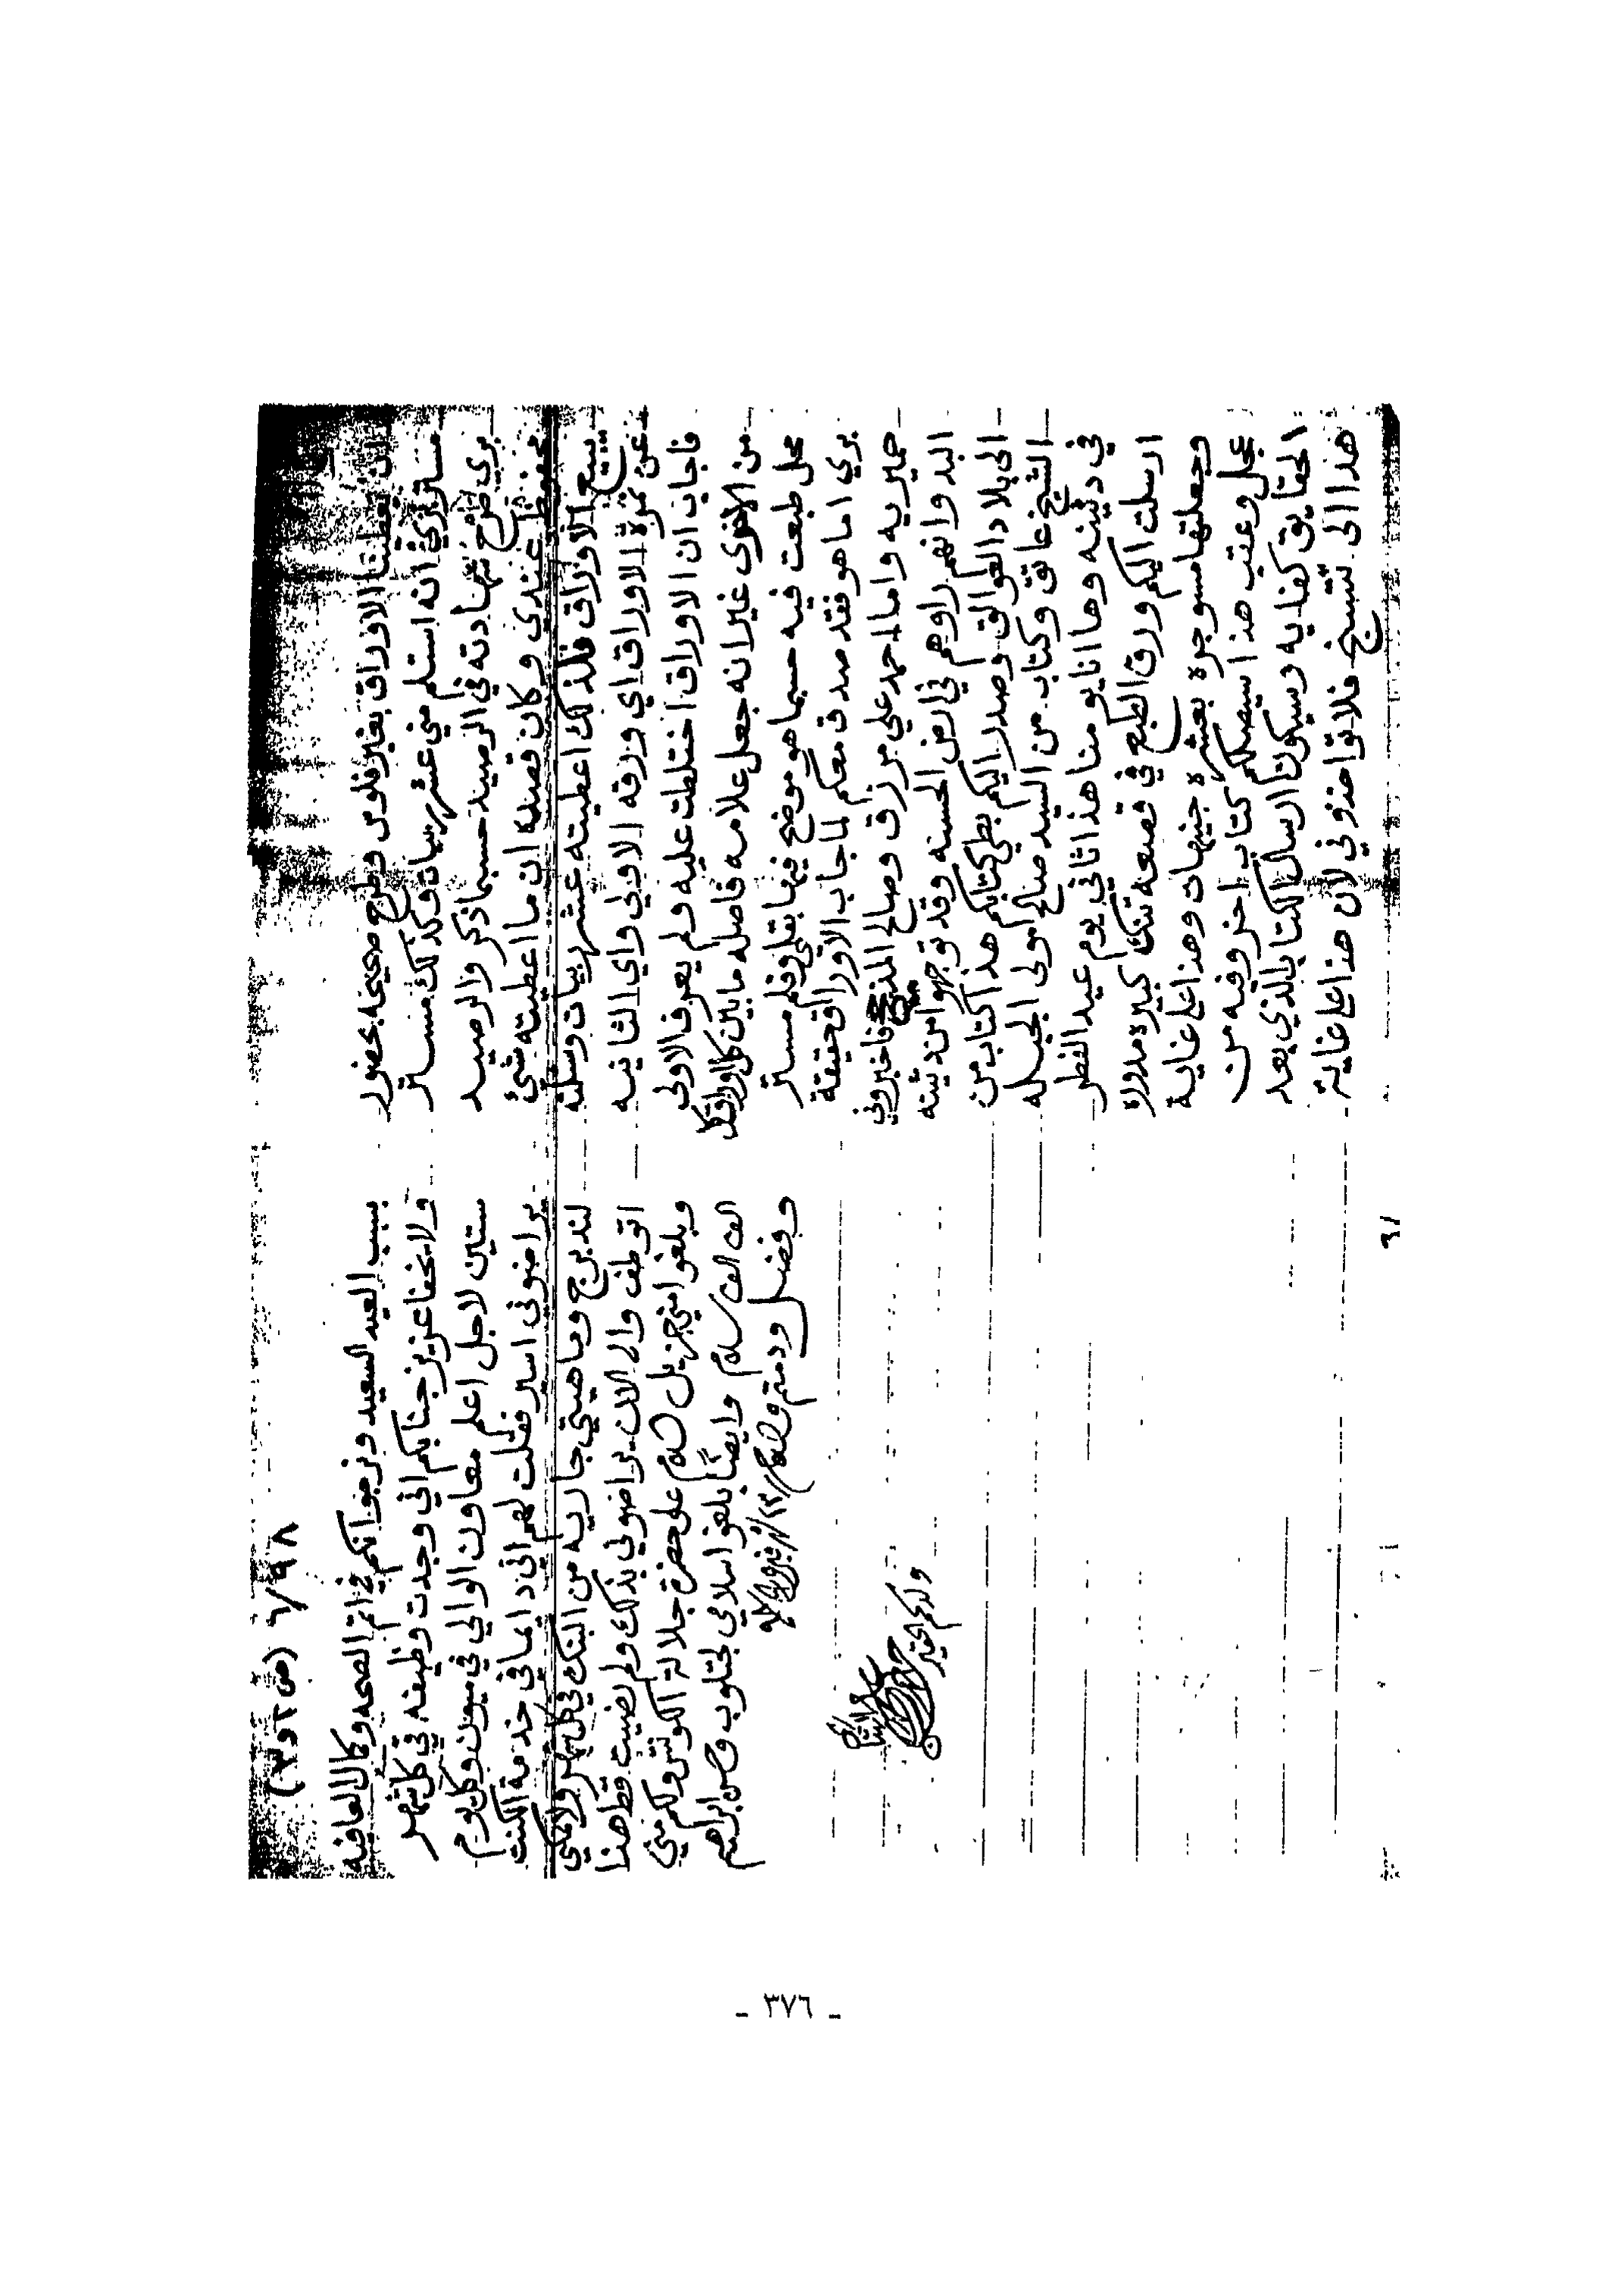 ٦/٩٨ (ص ٢ و ٣)
لن يعطينا الاوراق بغير فلوس وطرح صحيحه بحضور
مستر بري انه استلم مني عشر ربيات وكذلك مستر
بري طرح شهادته في الرصيد حسبما ذكر والرصيد
محفوظ عندي وكان قصده ان ما اعطيته شئ
يبيع الاوراق فلذلك اعطيته عشر ربيات وسلته
عن نمرة الاوراق اي ورقه الاولى واي الثانيه
فاجاب ان الاوراق اختلطت عليه ولم يعرف الاولى
من الاخرى غير انه جعل علامه فاصله ما بين كل اوراق
محل طبعت فيه حسبما هو موضح فيها بقلمي وقلم مستر
بري اما هو فقد صدق معكم لما جاب الاوراق حقيقة
حميريه واما احمد علي مرزق وصالح فاخبروني
البدو انهم راوهم في ارض الحسنه وقد توجهوا من دثينه
الى بلاد العوالق وصدر اليكم بطي كتابكم هذا كتاب من
الشيخ عاتق وكتاب من السيد صالح امولى الجبله
في دثينه وها انا يومنا هذا ثاني يوم عيد الفطر
ارسلت اليكم ورق الطبع في قصعه تنك كبيره مدوره
وجعلتها مسوجره بعشره جنيهات وهذا على غاية
عجل وعقب هذا سيصلكم كتاب اخر وفيه من
الحقايق كفايه وسيكون ارسال الكتاب الذي بعد
هذا الى تتسخ فلا تواخذوني لان هذا على غاية
بسبب العيد السعيد ونرجوا انكم في اتم الصحه وكمال العافيه
ولا يخفا عزيز جنابكم اني وجدت وظيفه في كل شهر
ستين لاجل اعلم معاون الوالي في ميون وكل يوم
يراضوني اسير فقلت لهم اني دايما في خدمة الكنت
لندبرج وماهيتي جاريه من البنك في كل شهر ولا يمكني
اتوظف والى الان يراضوني بذلك ولم رضيت قط هذا
وبلغوا مني جزيل سلام على حضرة جلالة الكونتس ولكم مني
الف الف سلام وايضًا بلغوا سلامي لجتلوب وحسن ابراهيم
وفضل ودمتم
ولدكم الحقير
١٦
- ٣٧٦ -